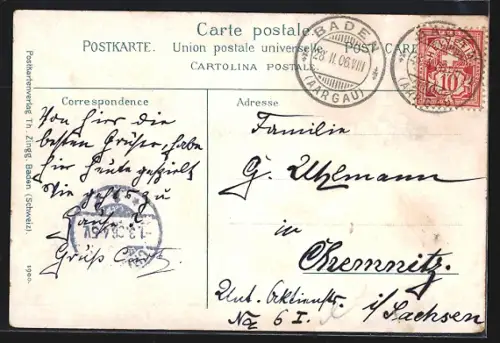 Carte postale.
POSTKARTE. Union postale universelle. POST CARD
CARTOLINA POSTALE.
BADEN
28.II.06.VIII
(AARGAU)
HELVETIA
10
(AARGAU)
Correspondence
Adresse
Von hier die
besten Grüße, habe
hier heute gespielt
Wie gehts zu
Haus?
Gruß
Familie
G. Uhlmann
in
Chemnitz.
i/Sachsen
Unt. Aktienstr.
No 6 I.
Postkartenverlag Th. Zingg, Baden (Schweiz).
1900